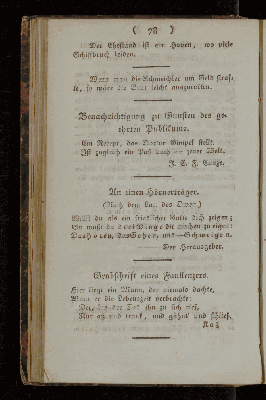 ( 78 )
Der Ehestand ist ein Hauen, wo viele
Schifbruch leiden.
Wenn man die Schmeichler um Geld straf-
te, so wäre die Brut leicht auszurotten.
Benachrichtigung zu Gunsten des ge-
ehrten Publikums.
Ein Rezept, das Doctor Gimpel stellt,
Ist zugleich ein Paß nach — jener Welt.
J. C. F.
An einen Hörnerträger.
(Nach dem Lat. des Owen.)
Willst du als ein friedlicher Gatte dich zeigen;
So mußt du drei Dinge dir machen zu eigen:
Das Hören, das Sehen, und — Schweigen.
Der Herausgeber.
Grabschrift eines Faullenzers.
Hier liegt ein Mann, der niemals dachte,
Wenn er die Lebenszeit verbrachte:
Der, bis der Tod ihn zu sich rief,
Nur aß und trank, und gähnt' und schlief.
Raß